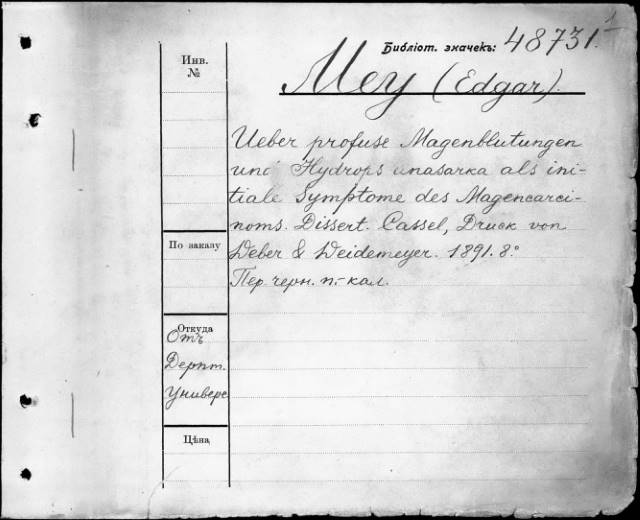 Библіот. значекъ: 48731.
Инв.
№
Mey (Edgar).
Ueber profuse Magenblutungen
und Hydrops anasarka als ini-
tiale Symptome des Magencarci-
noms. Dissert. Cassel, Druck von
Weber & Weidemeyer. 1891. 8.º
Пер. черн. п.-кал.
По заказу
Откуда
Отъ
Дерпт.
Универс
Цѣна